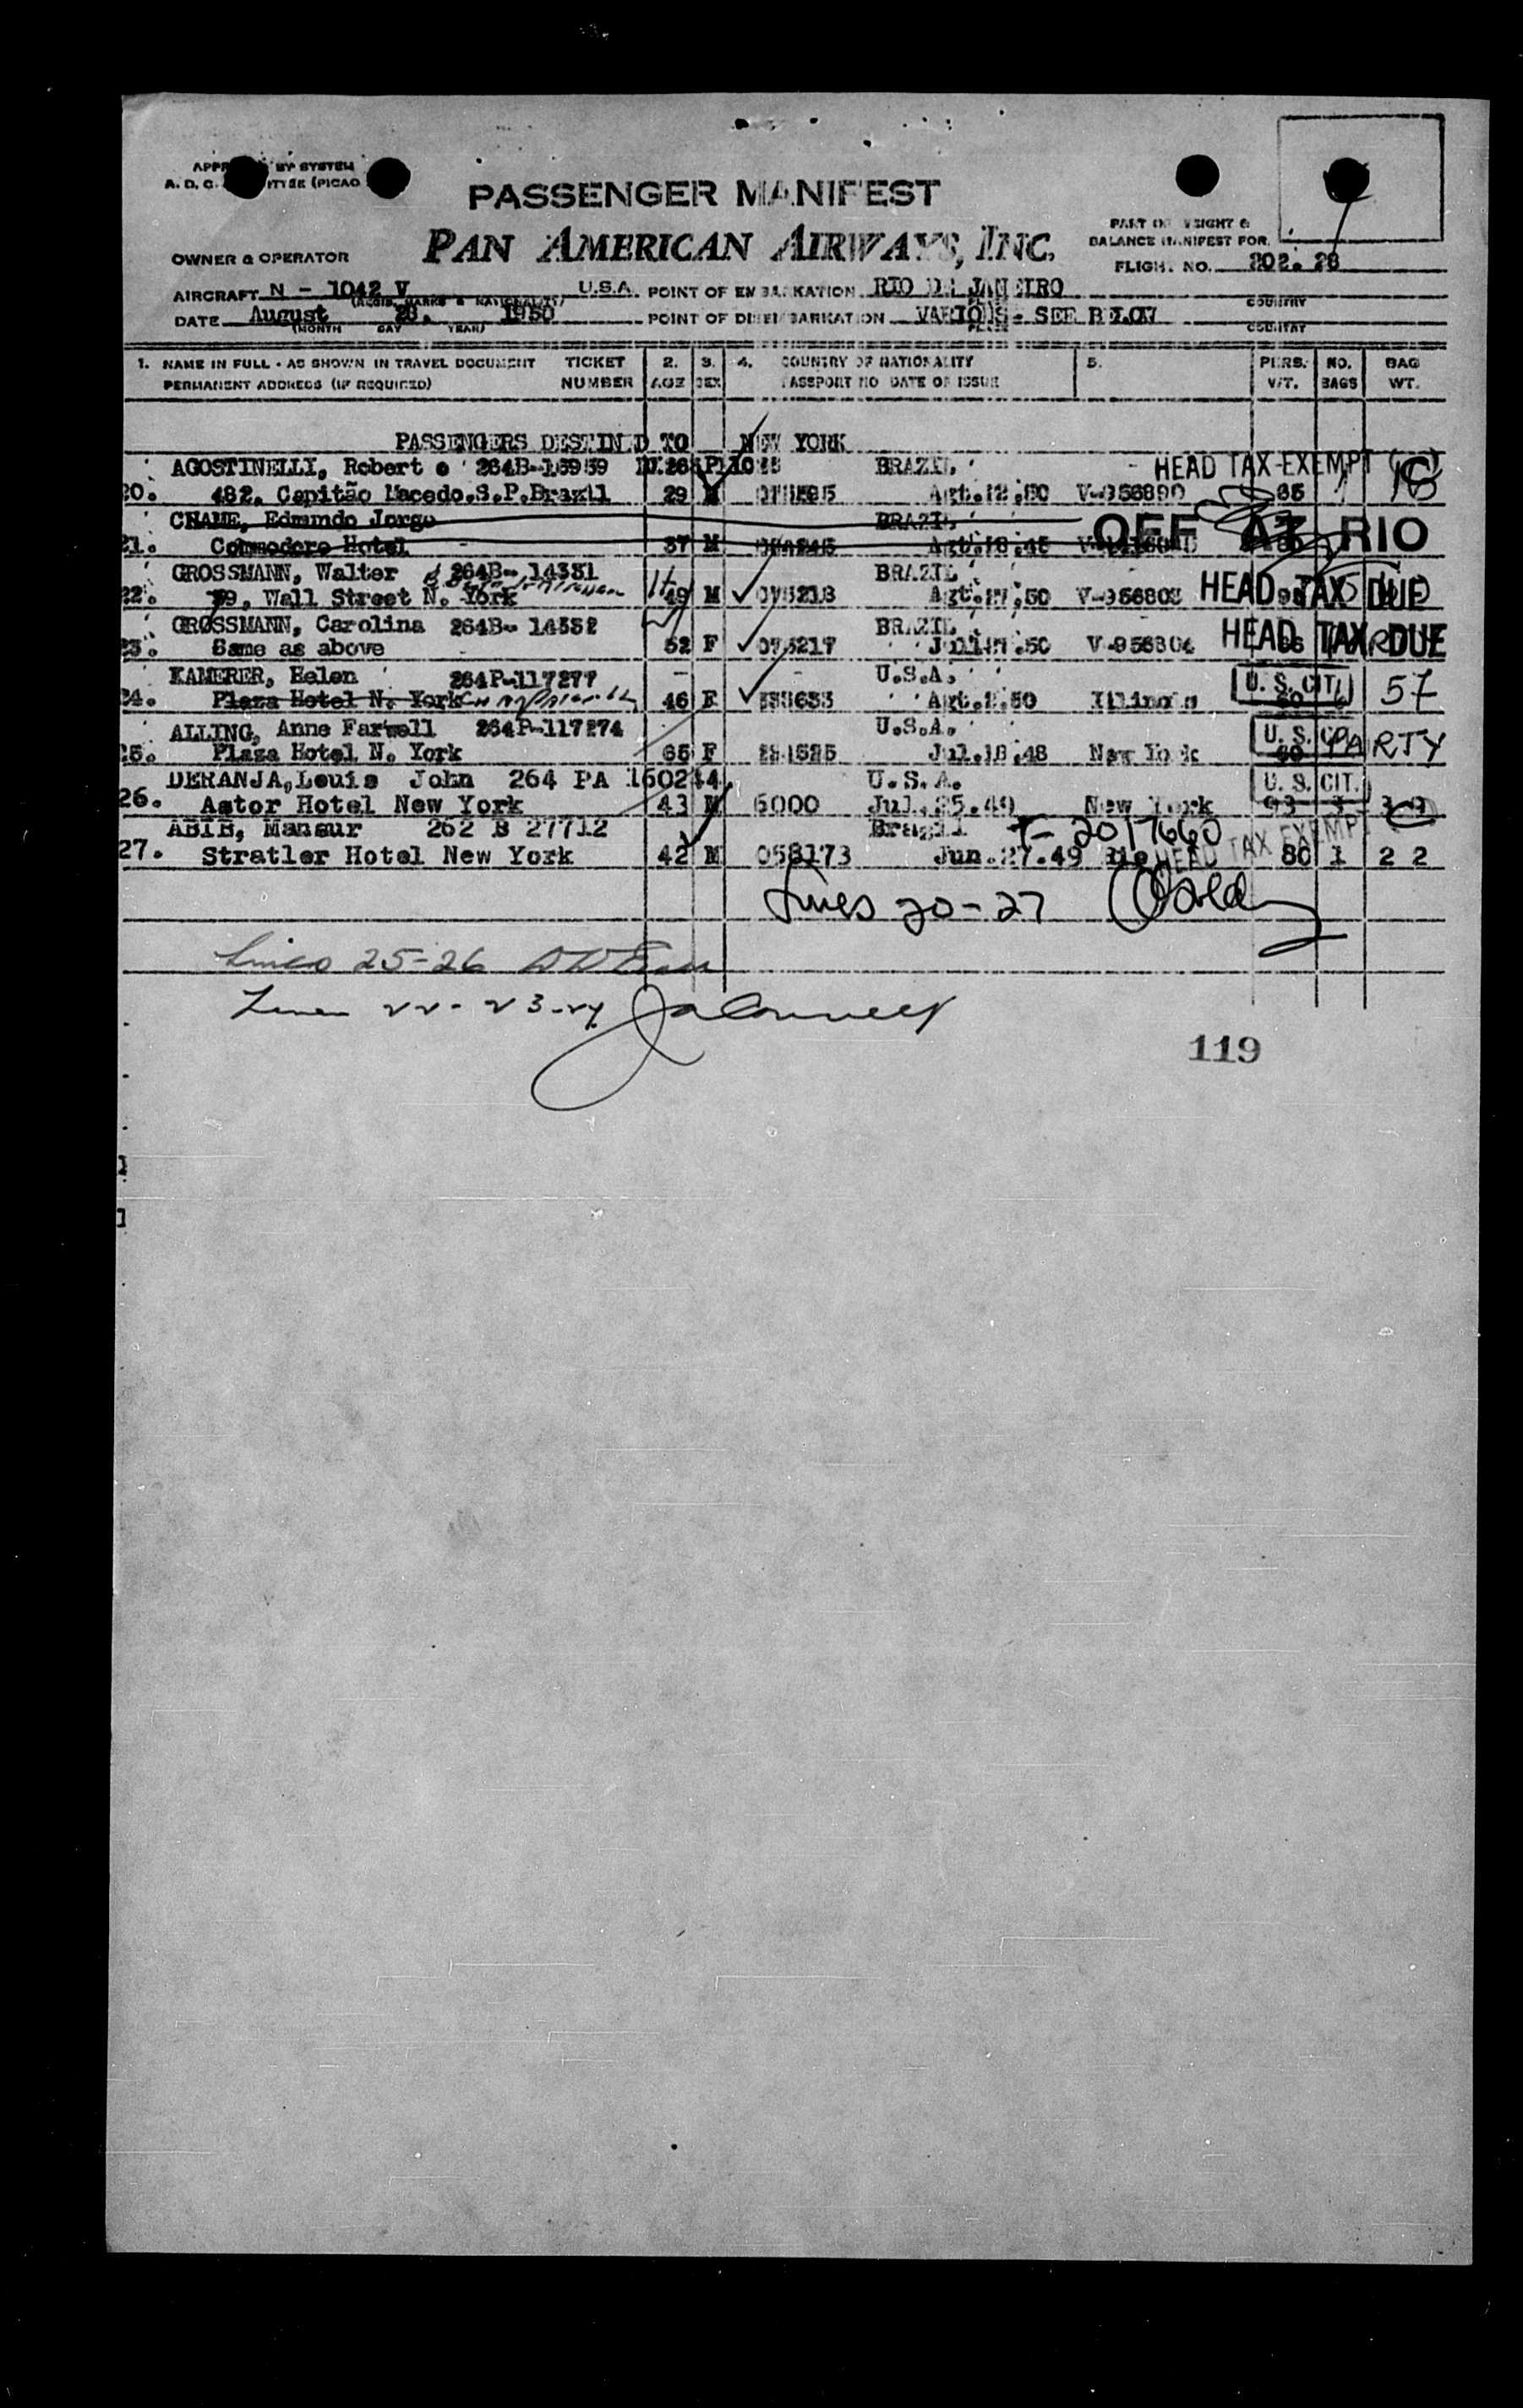 PASSENGER MANIFEST
PAN AMERICAN AIRWAYS, INC.
OWNER & OPERATOR
PART OF WEIGHT &
BALANCE MANIFEST FOR
FLIGHT NO. 202. 28
AIRCRAFT N - 1042 V U.S.A. POINT OF EMBARKATION RIO DE JANEIRO
DATE August 28, 1950 POINT OF DISEMBARKATION VARIOUS - SEE BELOW
(MONTH DAY YEAR) COUNTRY
1. NAME IN FULL - AS SHOWN IN TRAVEL DOCUMENT TICKET 2. 3. 4. COUNTRY OF NATIONALITY 5. PERS. NO. BAG
PERMANENT ADDRESS (IF REQUIRED) NUMBER AGE SEX PASSPORT NO DATE OF ISSUE WT. BAGS WT.
PASSENGERS DESTINED TO NEW YORK
AGOSTINELLI, Robert o 264B-16959 BRAZIL HEAD TAX EXEMPT
20. 482, Capitão Macedo.S.P.Brazil 29 M Agt.12,50 V-956890 65
CHAME, Edmundo Jorge BRAZIL OFF AT RIO
21. Commodore Hotel 37 M
GROSSMANN, Walter 264B- 14331 BRAZIL HEAD TAX DUE
22. 79, Wall Street N. York 49 M 075218 Agt.17,50 V-956803
GROSSMANN, Carolina 264B- 14332 BRAZIL HEAD TAX DUE
23. Same as above 52 F 075217 V-956804
KAMERER, Helen 264P-117277 U.S.A. U. S. CIT.
24. Plaza Hotel N. York 46 F Agt.2,50 Illinois 57
ALLING, Anne Farwell 264P-117274 U.S.A. U. S. CIT.
25. Plaza Hotel N. York 65 F Jul.18,48 New York 60 PARTY
DERANJA, Louis John 264 PA 160244 U.S.A. U. S. CIT.
26. Astor Hotel New York 43 M 6000 Jul.25.49 New York 93 3
ABIB, Mansur 262 B 27712 Brazil T- 2017660 HEAD TAX EXEMPT
27. Stratler Hotel New York 42 M 058173 Jun.27.49 80 1 22
Lines 20-27
Lines 25-26
Lines 22-23-24
119